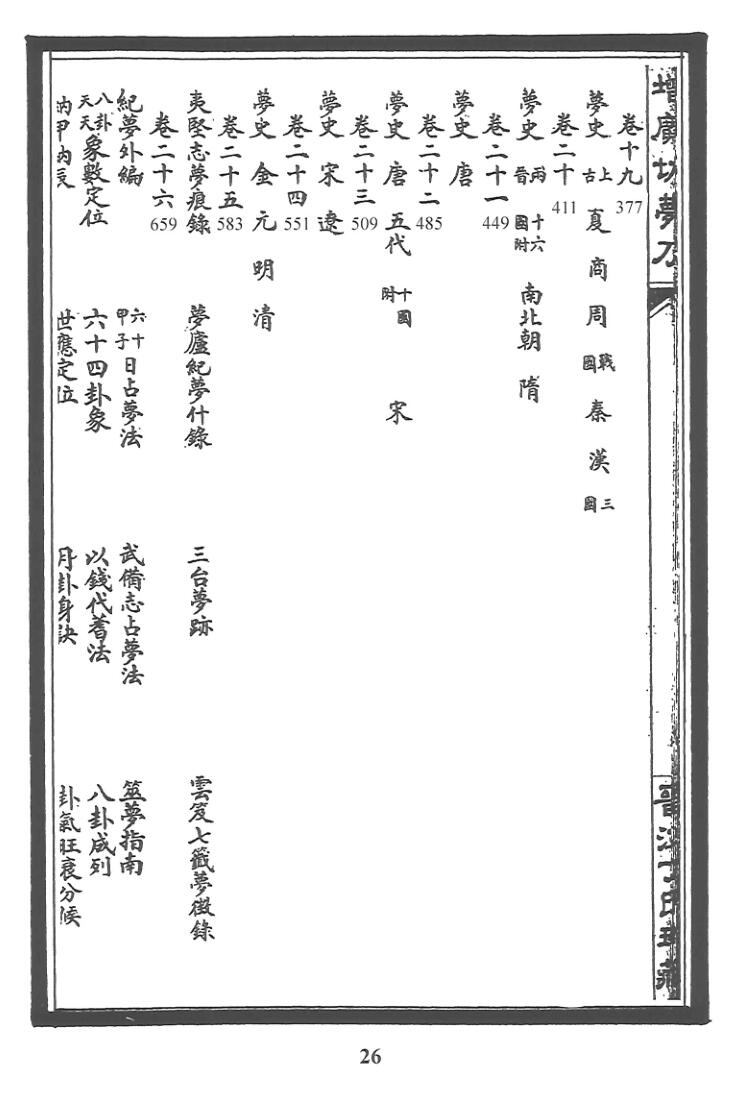 增廣切夢刀
卷十九 377
夢史 上古 夏 商 周 戰國 秦 漢 三國
卷二十 411
夢史 兩晉 十六國附 南北朝 隋
卷二十一 449
夢史 唐
卷二十二 485
夢史 唐 五代 十國附 宋
卷二十三 509
夢史 宋 遼
卷二十四 551
夢史 金 元 明 清
卷二十五 583
夷堅志夢痕錄 夢廬紀夢什錄 三台夢跡 雲笈七籤夢徵錄
卷二十六 659
紀夢外編 六十甲子日占夢法 武備志占夢法 筮夢指南
八卦天天象數定位 六十四卦象 以錢代蓍法 八卦成列
納甲納辰 世應定位 月卦身訣 卦氣旺衰分候
26